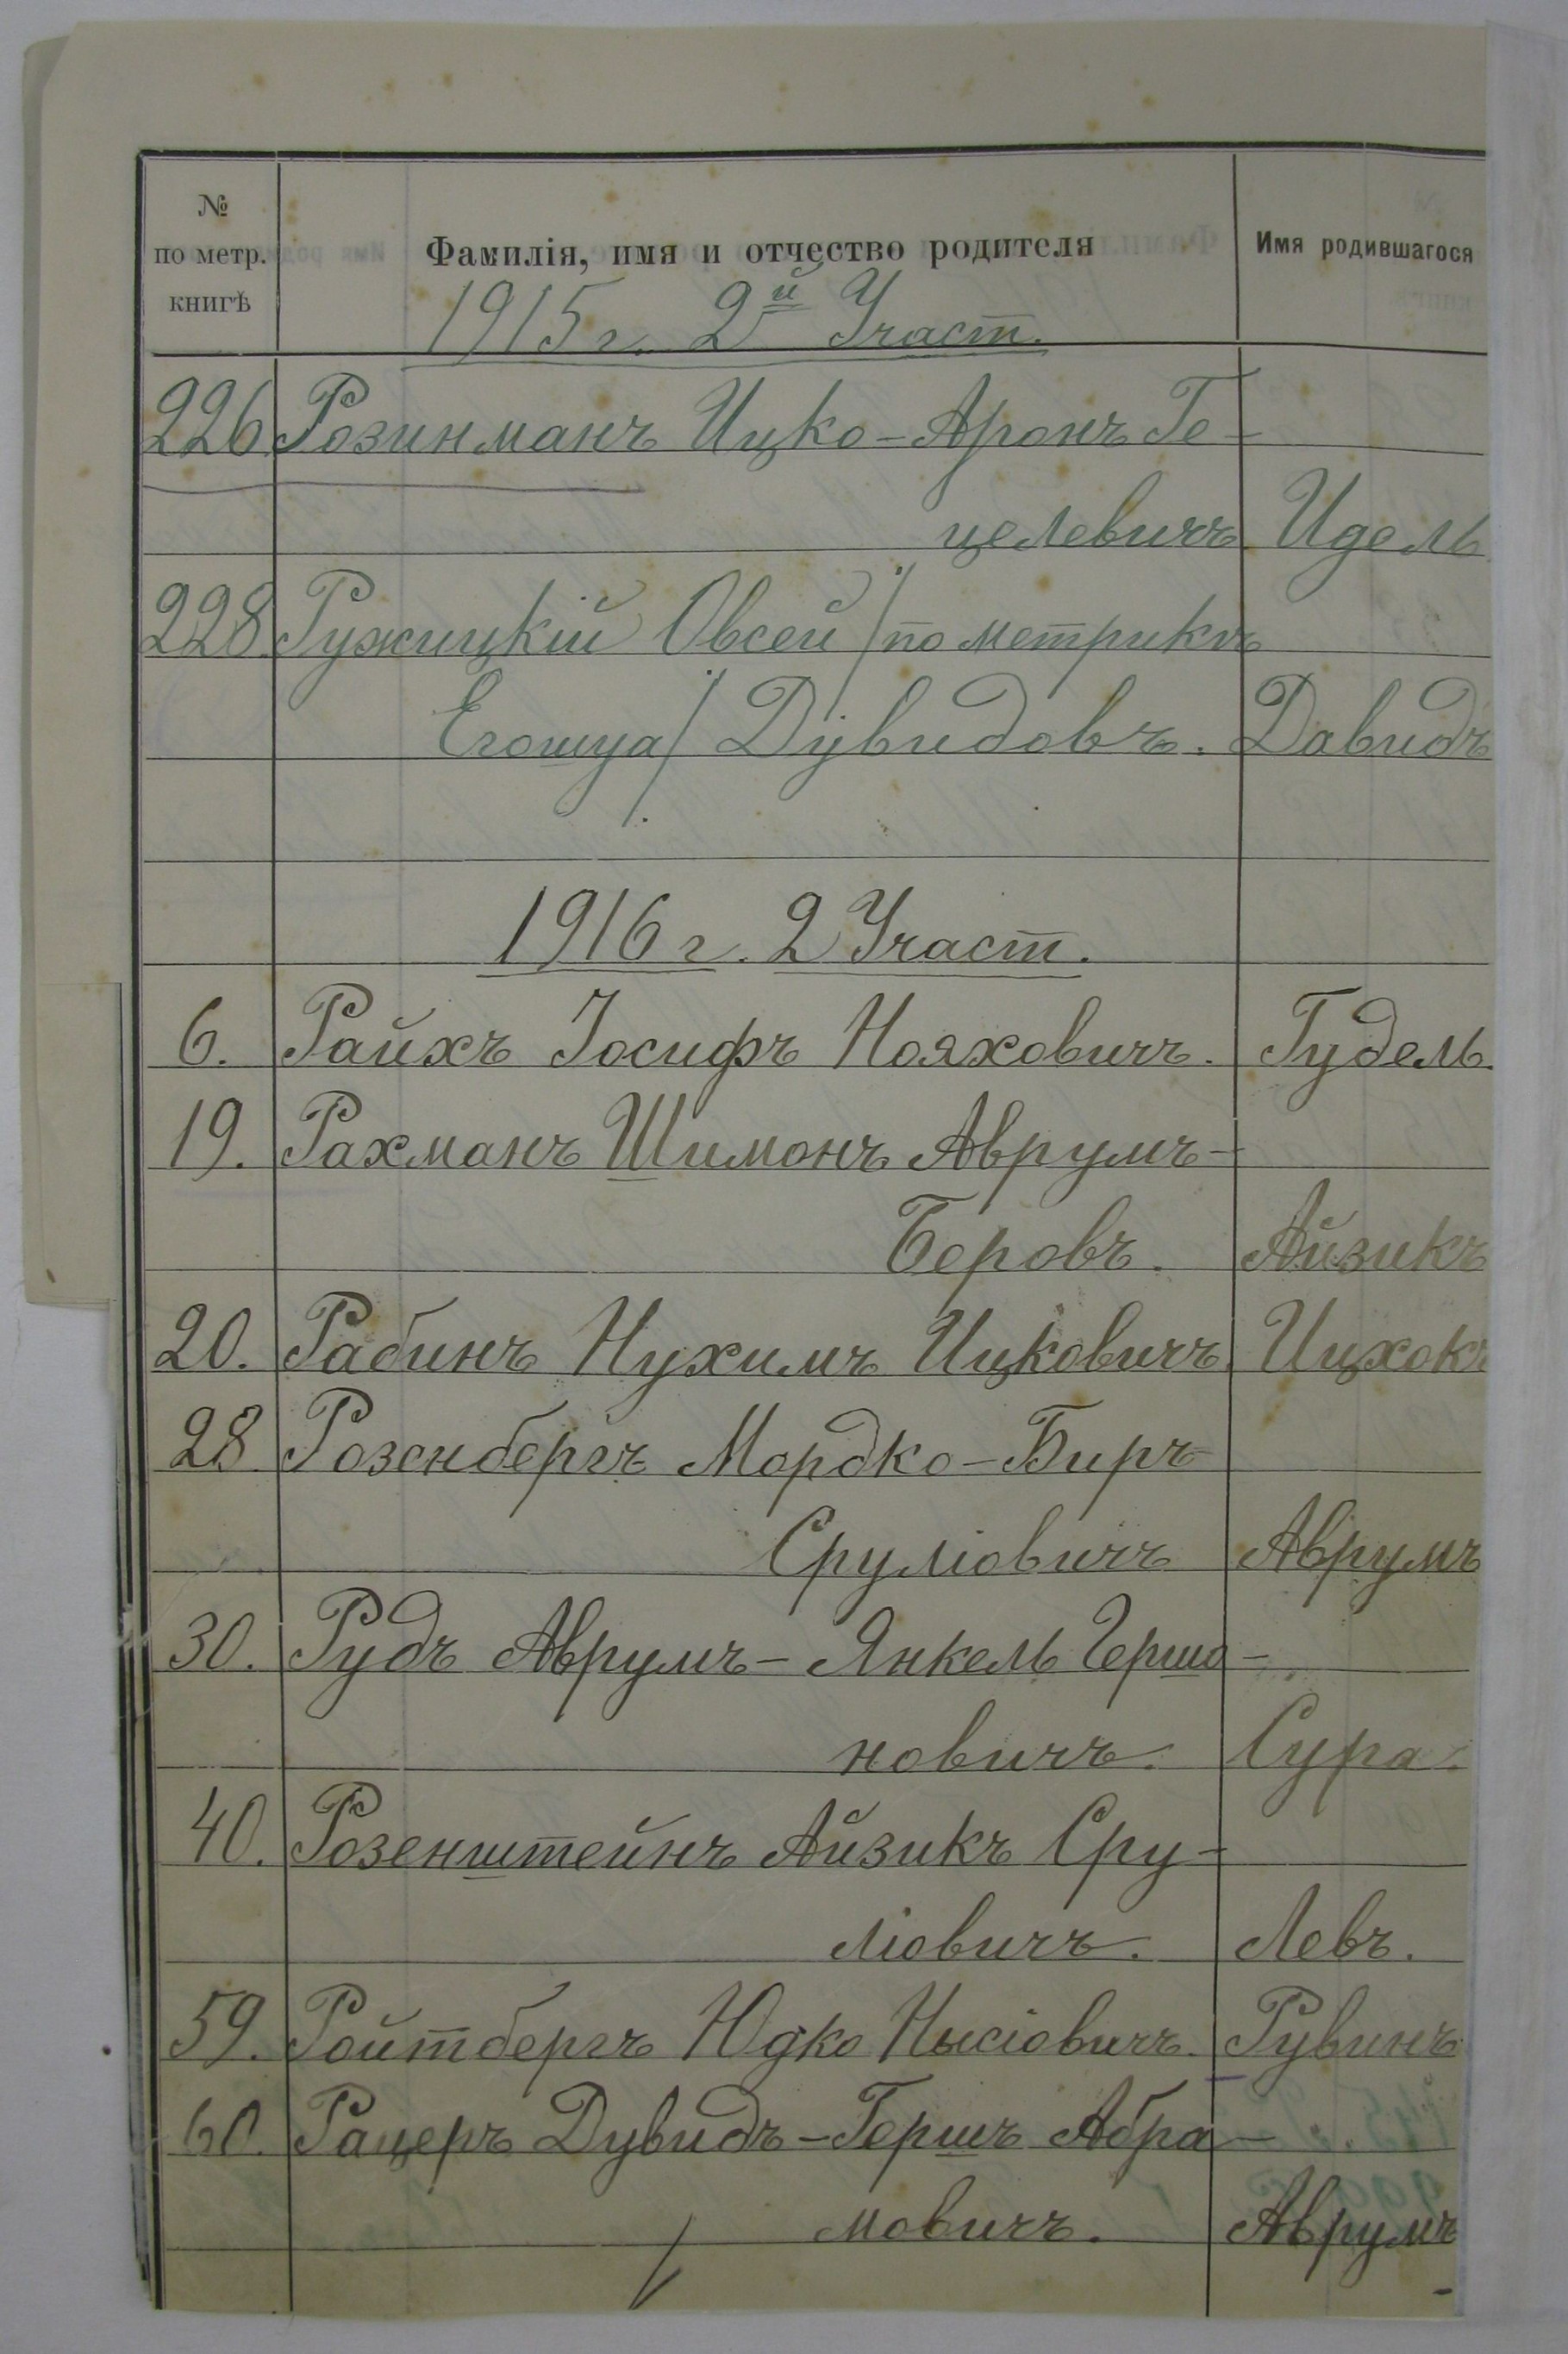 № по метр. книгѣ | Фамилія, имя и отчество родителя | Имя родившагося
1915 г. 2й Участ.
226 Розинманъ Ицко-Аронъ Ге-
целевичъ. Идель
228 Ружицкій Овсей /по метрикѣ
Егошуа/ Дувидовъ. Давидъ
1916 г. 2 Участ.
6. Райхъ Іосифъ Нояховичъ. Гудель.
19. Рахманъ Шимонъ Аврумъ-
Беровъ. Айзикъ
20. Рабинъ Нухимъ Ицковичъ. Ицхокъ
28 Розенбергъ Мордко-Биръ
Сруліовичъ Аврумъ
30. Рудъ Аврумъ-Янкель Гершо-
новичъ. Сура.
40. Розенштейнъ Айзикъ Сру-
ліовичъ. Левъ.
59. Ройтбергъ Юдко Нысіовичъ. Рувинъ
60. Рацеръ Дувидъ-Гершъ Абра-
мовичъ. Аврумъ